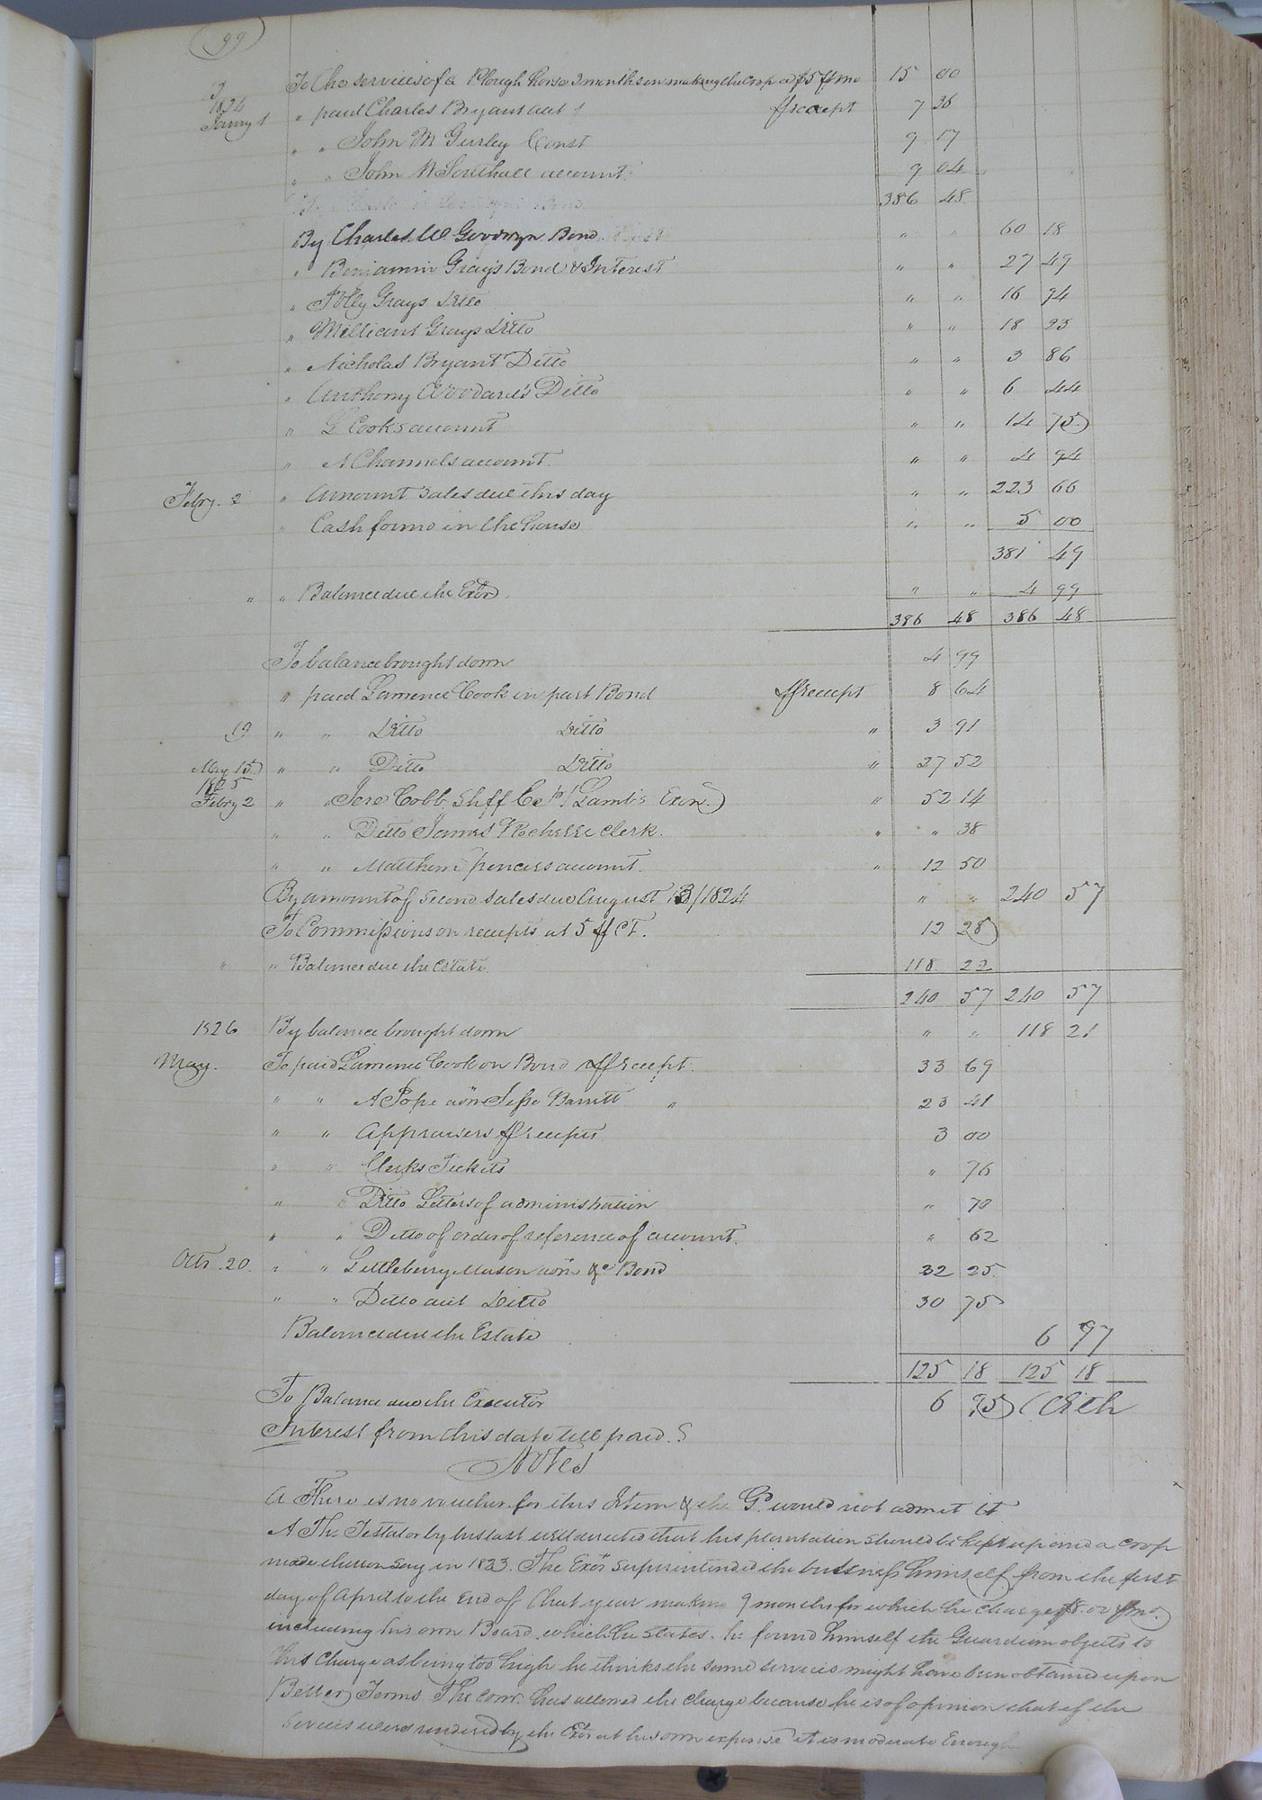 99
To the services of a Plough horse 3 months in making the crop at $5 ℔ mo 15 00
1824
Janry 1 " paid Charles Bryant acct ℔ receipt 7 36
" " John M Gurley Const 9 17
" " John N Southall account 9 04
386 48
By Charles W Goodwyn Bond " " 60 18
" Benjamin Gray's Bond & Interest " " 27 49
" Polly Grays Ditto " " 16 94
" Millicent Grays Ditto " " 18 23
" Nicholas Bryant Ditto " " 3 86
" Anthony Woodard's Ditto " " 6 44
" L Cooks account " " 14 75
" A Channels account " " 4 94
Febry. 2 " Amount Sales due this day " " 223 66
" Cash found in the House " " 5 00
381 49
" " Balance due the Exor. " " 4 99
386 48 386 48
To balance brought down 4 99
" paid Lawrence Cook in part Bond ℔ receipt 8 64
19 " " Ditto Ditto " 3 91
May 15 " " Ditto Ditto " 27 52
1825
Febry 2 " " Jere Cobb Shff Lamb's Exon. " 52 14
" " Ditto James Rochelle Clerk. " " 38
" " Matthew account. " 12 50
By amount of Second sales due August 13/1824 " " 240 57
To Commissions on receipts at 5 ℔ Ct. 12 28
" " Balance due the Estate. 118 22
240 57 240 57
1826 By balance brought down " " 118 21
May. To paid Lawrence Cook on Bond ℔ receipt. 33 69
" " A Pope adm Jesse Barrett " 23 41
" " Appraisers ℔ receipts 3 00
" " Clerks Tickets " 76
" " Ditto Letters of administration " 70
" " Ditto of order of reference of account. " 62
Octr. 20. " " Littleberry Mason adm &c Bond 32 25
" " Ditto acct Ditto 30 75
Balance due the Estate 6 97
125 18 125 18
To Balance due the Executor 6 95 (With
Interest from this date till paid.
Notes
A There is no voucher for this Item & the G. would not admit it
A The Testator by his last will directed that his plantation should be kept up and a crop
made thereon Say in 1823. The Exor Superintended the business himself from the first
day of April to the End of that year making 9 months for which he charges $8.00 ℔ mo.
including his own Board which he states he found himself the Guardian objects to
this charge as being too high he thinks the same services might have been obtained upon
Better Terms The Comr. has allowed the charge because he is of opinion that if the
Services were rendered by the Exor at his own expense it is moderate Enough